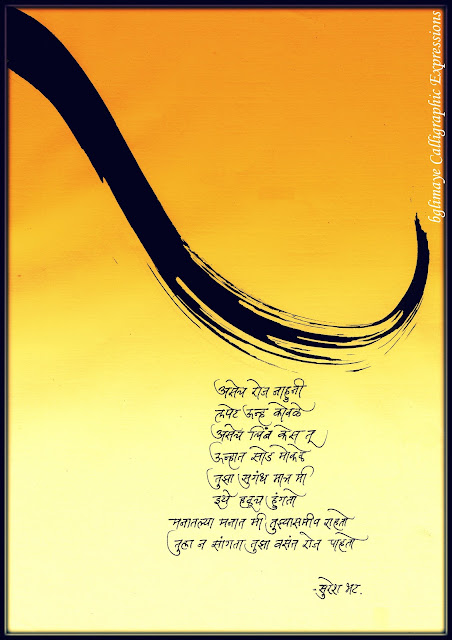 bglimaye Calligraphic Expressions
असेच रोज न्हाहुनी
लपेट ऊन्ह कोवळे
असेच चिंब केस तू
ऊन्हात सोड मोकळे
तुझा सुगंध मात्र मी
इथे हळूच हुंगतो
मनातल्या मनात मी तुझ्यासमीप राहतो
तुला न सांगता तुझा वसंत रोज पाहतो
-सुरेश भट.